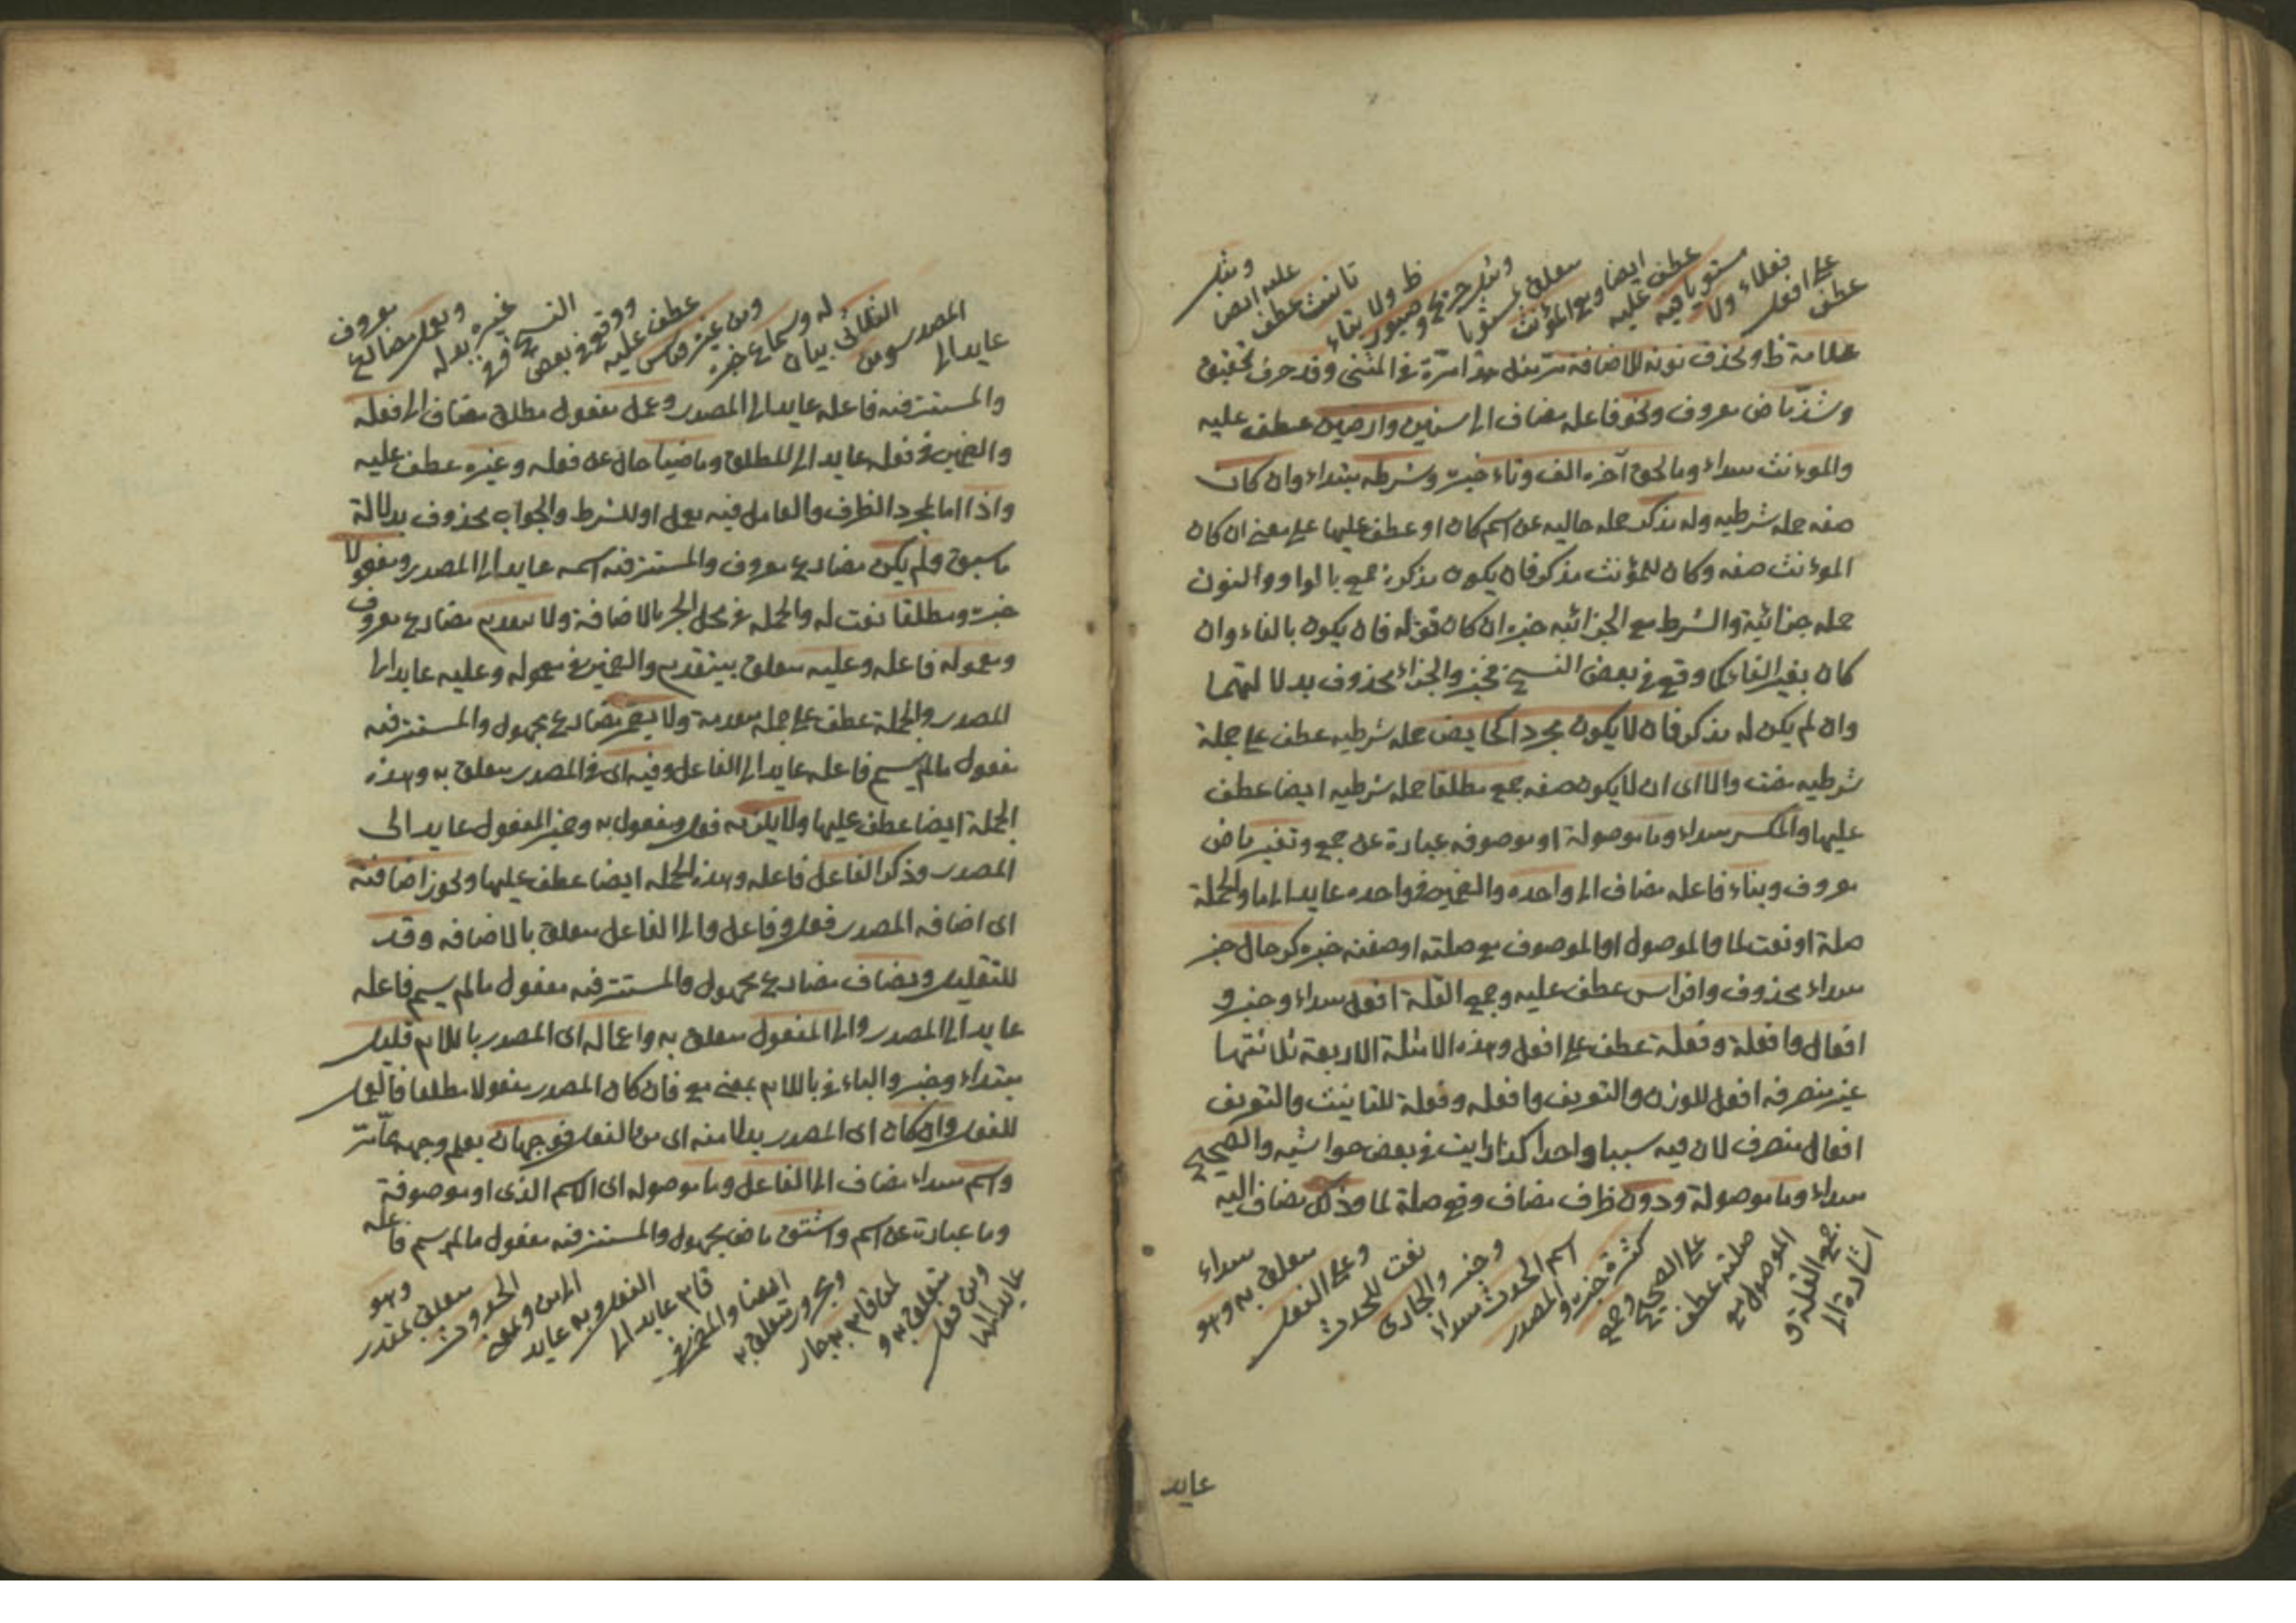 عطف
على افعل
فعلاء ولا
مستويا فيه
عطف عليه
ايضا ومع المؤنث
متعلق بمستويا
ومثل جريح وصبور
ظ ولا بتاء
تانيث عطف
عليه ايضا
ومثل
علامة ظ وتحذف نونه للاضافة مثل هذا مرة في المثنى وقد حرف تحقيق
وشذ ماض معروف ونحو فاعله مضاف الى سنين وارضين عطف عليه
والمؤنث مبتداء وما لحق آخره الف وتاء خبره وشرطه مبتداء وان كان
صفه جمله شرطيه وله مذكر جمله حاليه عن اسم كان او عطف عليها على معنى ان كان
المؤنث صفه وكان للمؤنث مذكر فان يكون مذكره جمع بالواو والنون
جمله جزائية والشرط مع الجزائيه خبره ان كان قوله فان يكون بالفاء وان
كان بغير الفاء كما وقع في بعض النسخ فخبر والجزاء محذوف بدلالتهما
وان لم يكن له مذكر فان لا يكون مجردا كحايض جمله شرطيه عطف على جملة
شرطيه مضت والا اى ان لا يكون صفه جمع مطلقا جمله شرطيه ايضا عطف
عليها والمكسر مبتداء وما موصولة او موصوفه عبارة عن جمع وتغير ماض
معروف وبناء فاعله مضاف الى واحده والضمير في واحده عايد الى ما والجملة
صلة او نعت لما والموصول او الموصوف مع صلته او صفته خبره كرجال خبر
مبتداء محذوف وافراس عطف عليه وجمع القلة افعل مبتداء وخبر و
افعال وافعلة وفعلة عطف على افعل وهذه الامثلة الاربعة ثلاثتها
غير منصرفه افعل للوزن والتعريف وافعله وفعلة للتانيث والتعريف
افعال منصرف لان فيه سببا واحدا كذا رايت في بعض حواشيه والصحيح
مبتداء وما موصولة ودون ظرف مضاف وقع صلة لما وذلك مضاف اليه
اشارة الى
جمع القلة و
الموصول مع
صلته عطف
على الصحيح
وجمع
كثرة خبره والمصدر
اسم الحدث مبتداء
وخبر والجارى
نعت للحدث
وعلى الفعل
متعلق به وهو
مبتداء
عايد
عايد الى
المصدر ومن
الثلاثى بيان
له وسماع خبره
ومن غيره قياس
عطف عليه
ووقع في بعض
النسخ في
غيره بدله
ويعمل مضارع
معروف
والمستتر فيه فاعله عايد الى المصدر وعمل مفعول مطلق مضاف الى فعله
والضمير في فعله عايد الى المطلق وماضيا حال عن فعله وغيره عطف عليه
واذا اما لمجرد الظرف والعامل فيه يعمل او للشرط والجواب محذوف بدلالة
ما سبق ولم يكن مضارع معروف والمستتر فيه اسمه عايد الى المصدر ومفعولا
خبره ومطلقا نعت له والجمله في محل الجر بالاضافة ولا يتقدم مضارع معروف
ومعموله فاعله وعليه متعلق بيتقدم والضمير في معموله وعليه عايد الى
المصدر والجملة عطف على جمله متقدمة ولا يضمر مضارع مجهول والمستتر فيه
مفعول مالم يسم فاعله عايد الى الفاعل وفيه اى في المصدر متعلق به وهذه
الجملة ايضا عطف عليها ولا يلزمه فعل ومفعول به وضمير المفعول عايد الى
المصدر وذكر الفاعل فاعله وهذه الجمله ايضا عطف عليها ويجوز اضافته
اى اضافه المصدر فعل وفاعل والى الفاعل متعلق بالاضافه وقد
للتقليل ويضاف مضارع مجهول والمستتر فيه مفعول مالم يسم فاعله
عايد الى المصدر والى المفعول متعلق به واعماله اى المصدر باللام قليل
مبتداء وخبر والباء في باللام بمعنى مع فان كان المصدر مفعولا مطلقا فالعمل
للفعل وان كان اى المصدر بدلا منه اى من الفعل فوجهان يعلم وجهه مما مر
واسم مبتداء مضاف الى الفاعل وما موصوله اى الاسم الذى او موصوفة
وما عبارة عن اسم واشتق ماض مجهول والمستتر فيه مفعول مالم يسم فاعله
عايد الى ما
ومن فعل
متعلق به و
لمن قام به جار
ومجرور متعلق به
ايضا والضمير في
قام عايد الى
الفعل وبه عايد
الى من وبمعنى
الحدوث
متعلق بمقدر
وهو